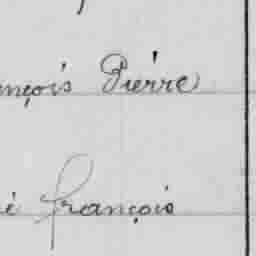 nçois Pierre
é françois